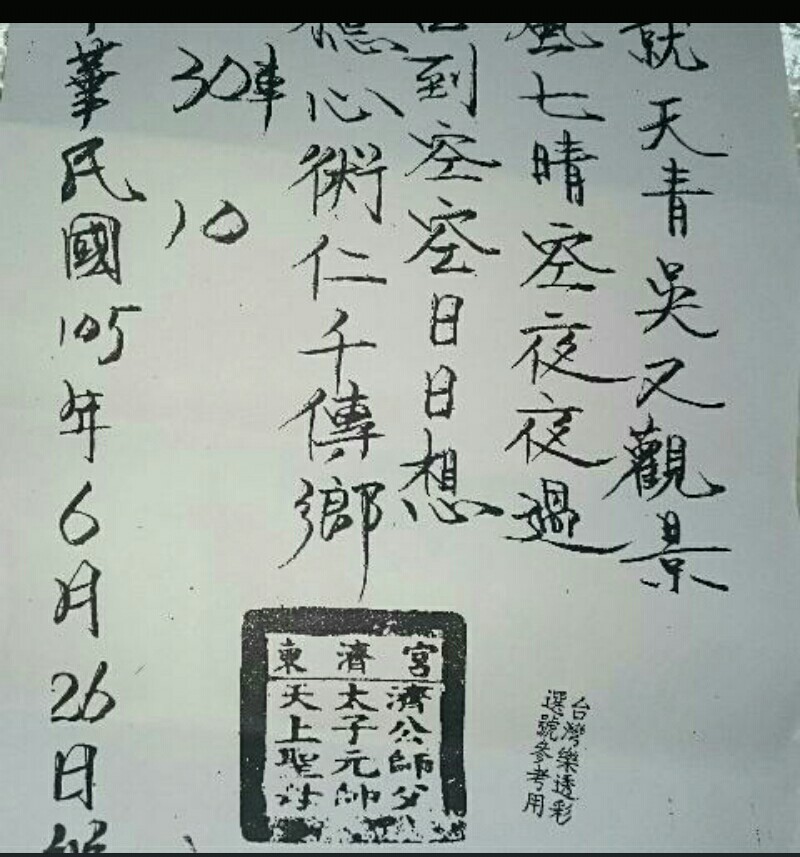 就天青吳又觀景
風七晴空夜夜過
到空空日日想
心術仁千傳鄉
30車 10
華民國105年6月26日
東濟宮
濟公師父
太子元帥
天上聖母
台灣樂透彩
選號參考用